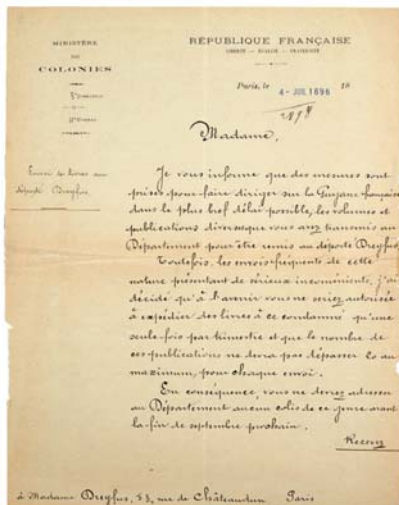 MINISTÈRE
DES
COLONIES
RÉPUBLIQUE FRANÇAISE
LIBERTÉ — ÉGALITÉ — FRATERNITÉ
Paris, le 4 - JUIL 1896 18
Madame,
Envoi de livres au
déporté Dreyfus.
Je vous informe que des mesures sont
prises pour faire diriger sur la Guyane française
dans le plus bref délai possible, les volumes et
publications diverses que vous avez transmis au
Département pour être remis au déporté Dreyfus.
Toutefois, les envois fréquents de cette
nature présentant de sérieux inconvénients, j'ai
décidé qu'à l'avenir vous ne seriez autorisée
à expédier des livres à ce condamné qu'une
seule fois par trimestre et que le nombre de
ces publications ne devra pas dépasser 20 au
maximum, pour chaque envoi.
En conséquence, vous ne devrez adresser
au Département aucun colis de ce genre avant
la fin de septembre prochain.
Recevez
à Madame Dreyfus, 53, rue de Châteaudun Paris